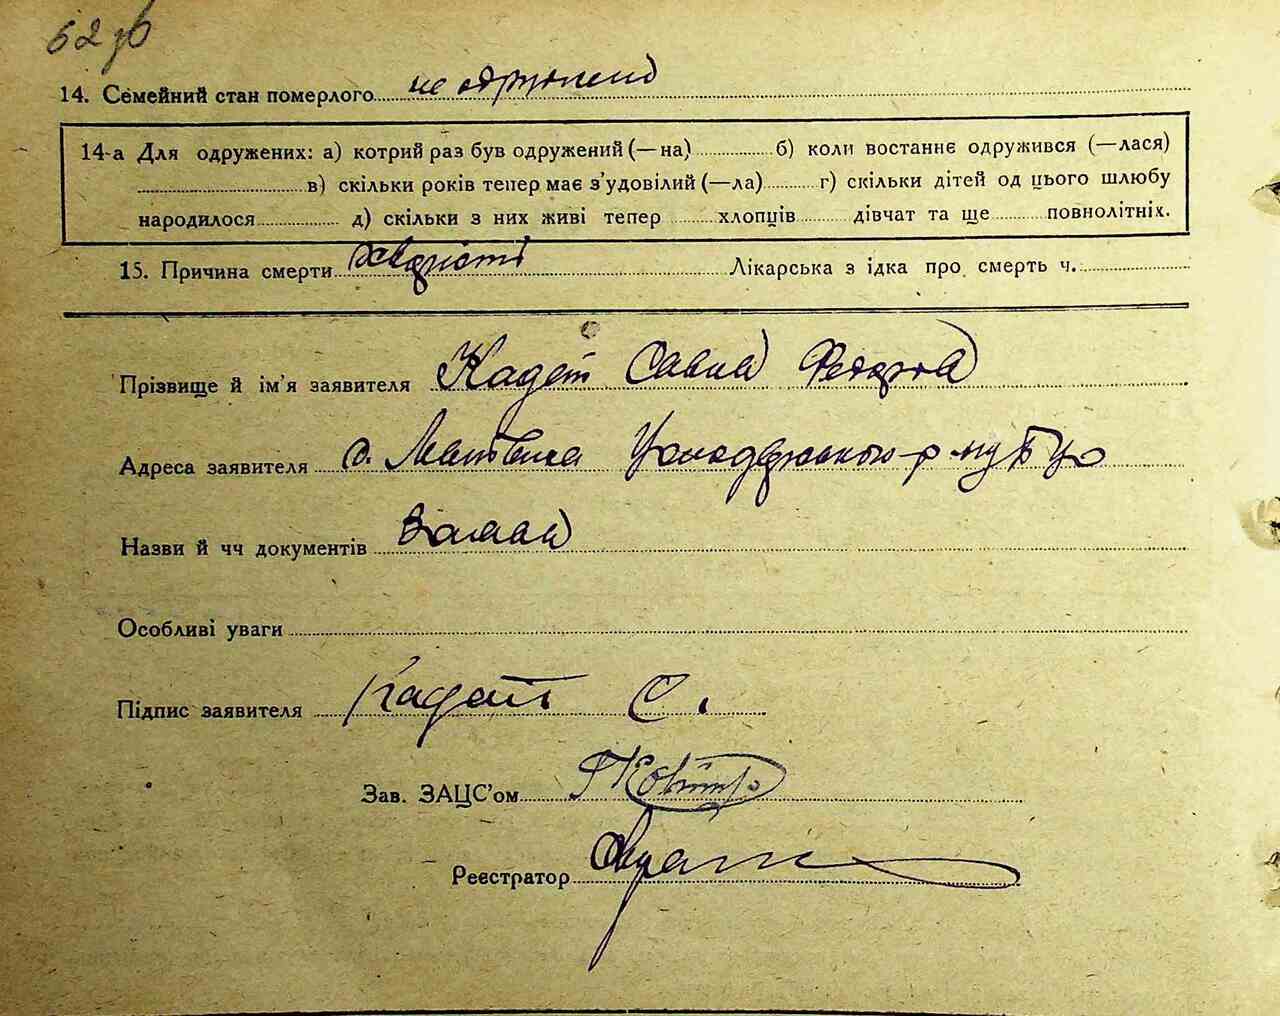 62 зв
14. Семейний стан померлого не одружений
14-а Для одружених: а) котрий раз був одружений (—на) б) коли востаннє одружився (—лася)
в) скільки років тепер має з'удовілий (—ла) г) скільки дітей од цього шлюбу
народилося д) скільки з них живі тепер хлопців дівчат та ще повнолітніх.
15. Причина смерти Лікарська з ідка про смерть ч.
Прізвище й ім'я заявителя Кадет Савка
Адреса заявителя с.
Назви й чч документів
Особливі уваги
Підпис заявителя Кадет С.
Зав. ЗАЦС'ом
Реєстратор